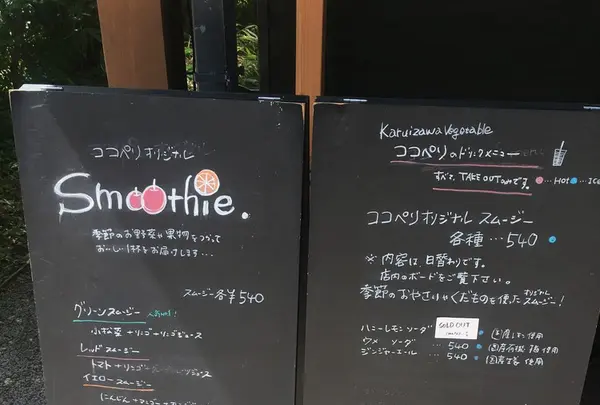 ココペリ オリジナル
Smoothie.
季節のお野菜や果物をつかって
おいしい1杯をお届けします…
スムージー各¥540
グリーンスムージー
小松菜+リンゴ+リンゴジュース
レッドスムージー
トマト+リンゴ
イエロースムージー
にんじん+
Karuizawa Vegetable
ココペリのドリンクメニュー
すべて、TAKE OUTです。 ●…HOT ●…ICE
ココペリオリジナル スムージー
各種…540 ●
※ 内容は日替わりです。
店内のボードをご覧下さい。
オリジナル
季節のおやさいやくだものを使たスムージー!
ハニーレモンソーダ SOLD OUT ● 国産レモン使用
ウメ ソーダ … 540 ● 国産 梅 使用
ジンジャーエール … 540 ● 国産生姜 使用